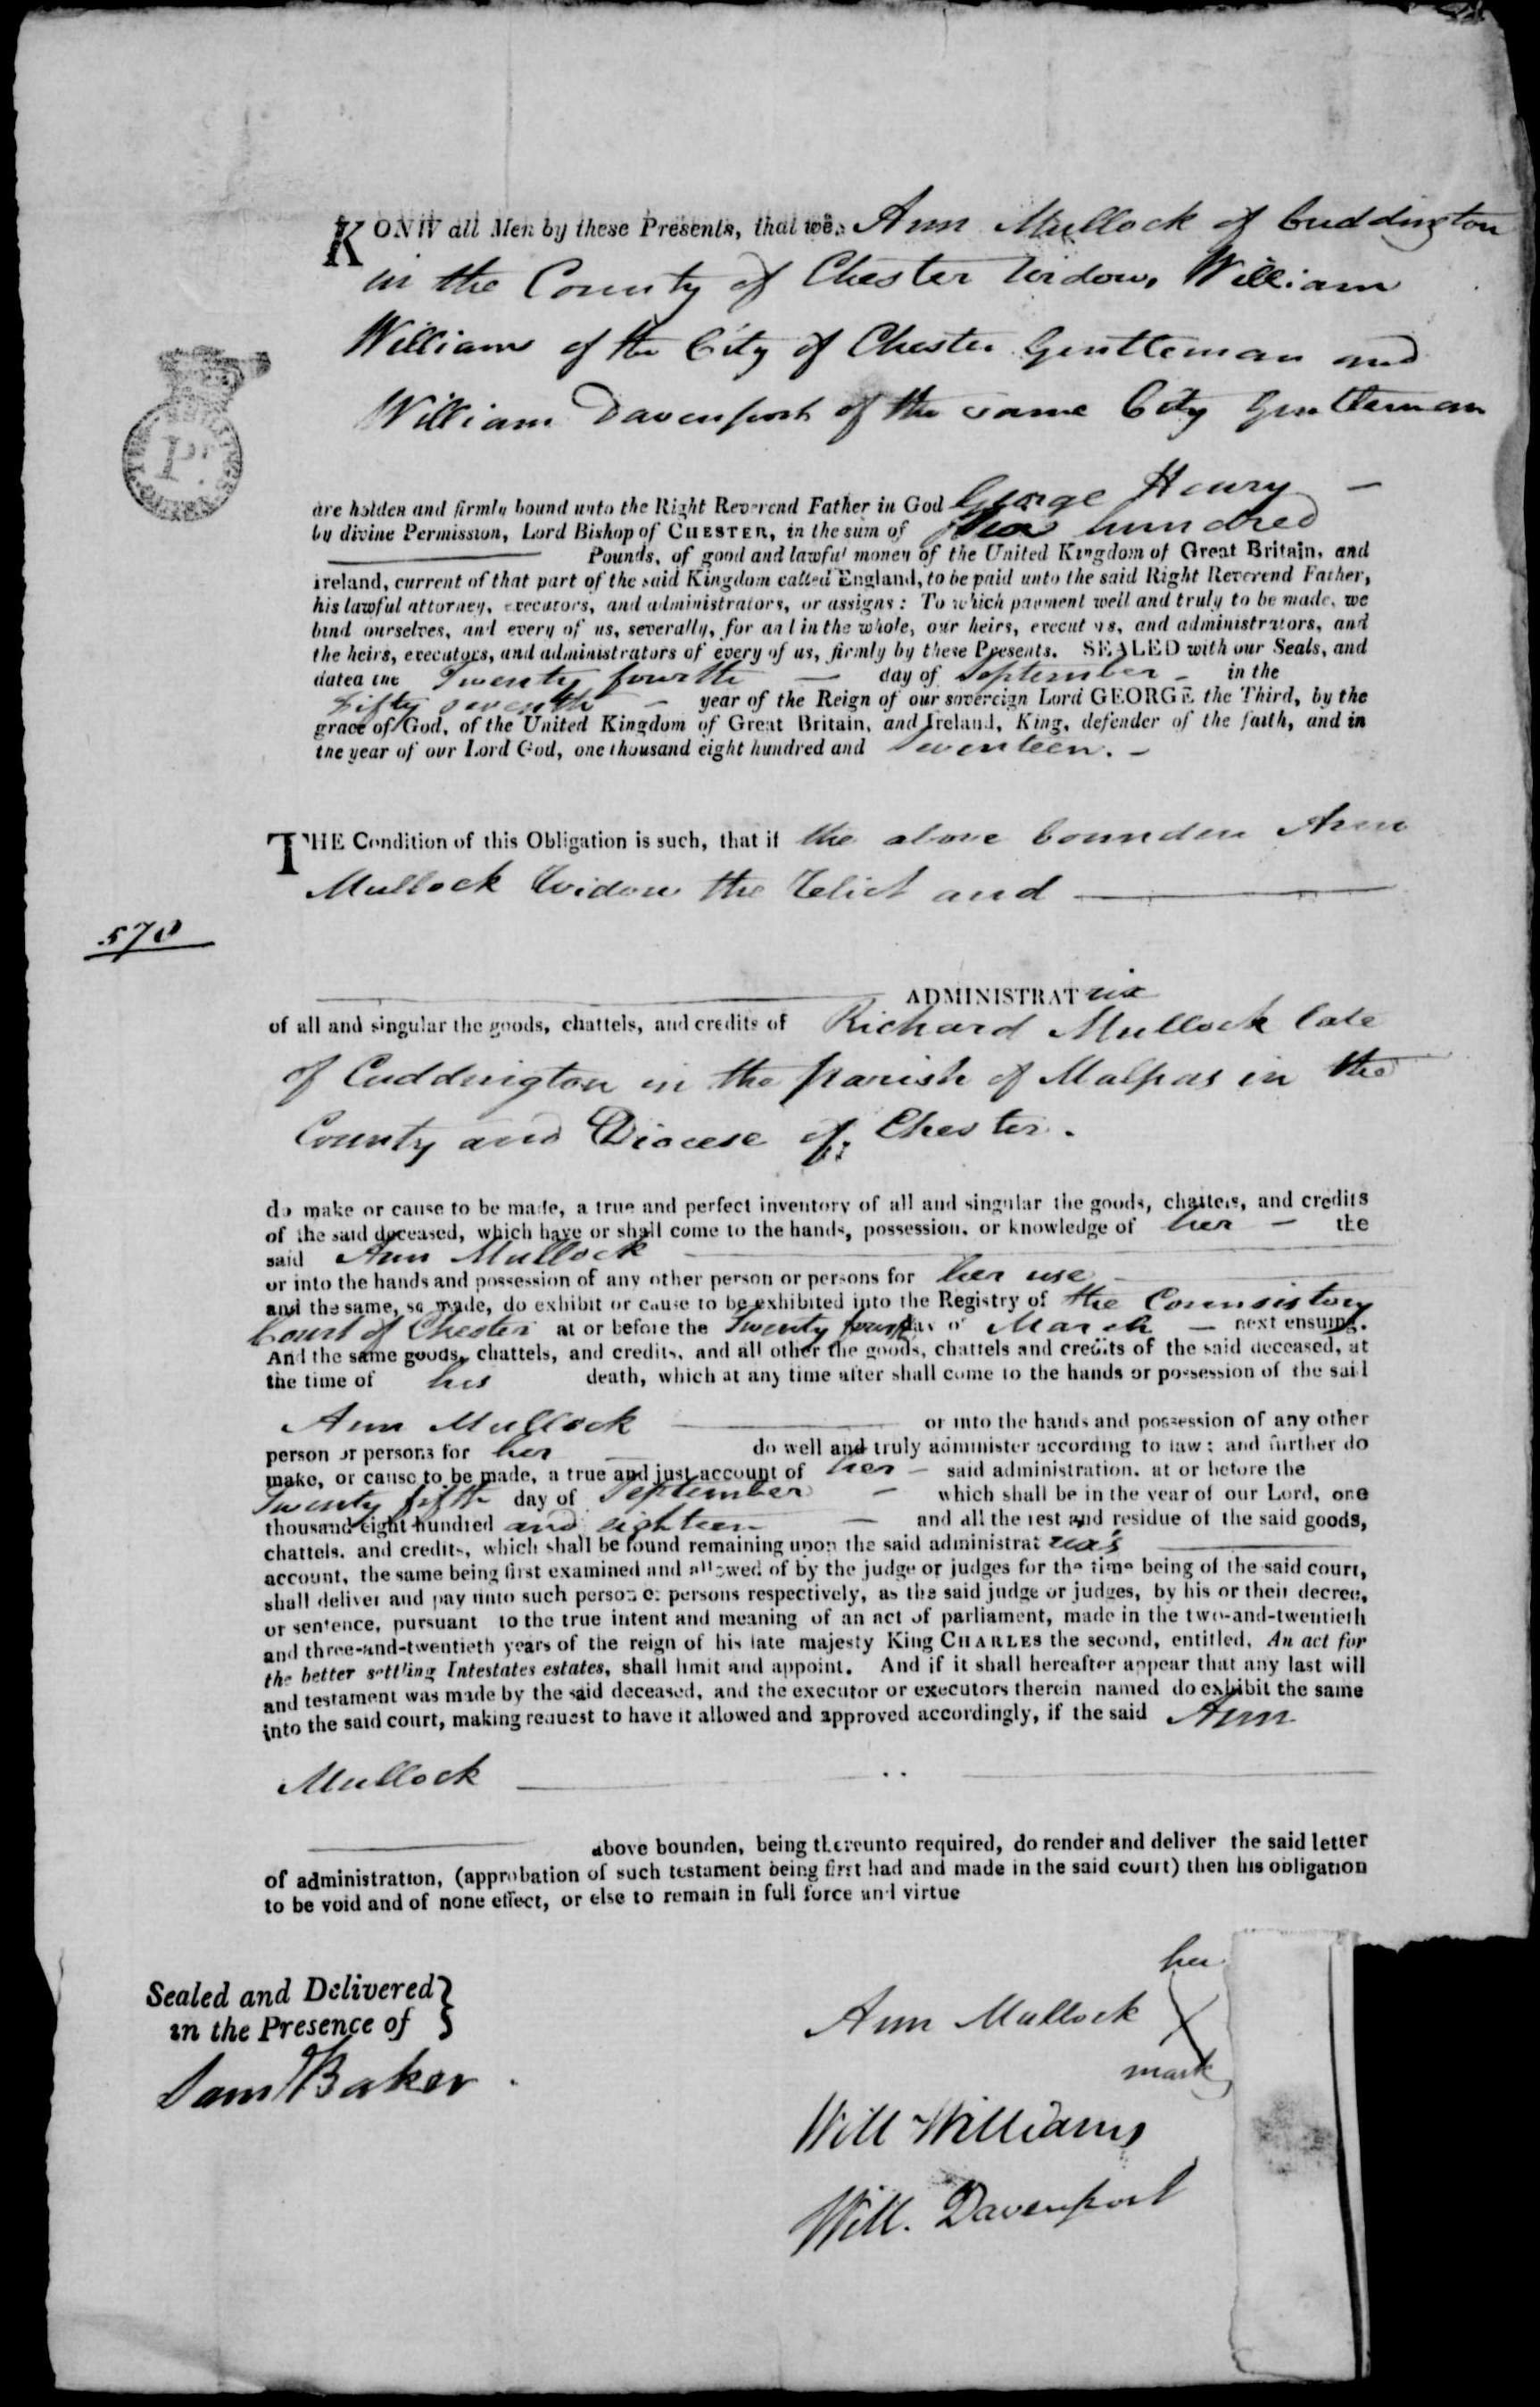 KONW all Men by these Presents, that we, Ann Mullock of Cuddington
in the County of Chester Widow, William
Williams of the City of Chester Gentleman and
William Davenport of the same City Gentleman
are holden and firmly bound unto the Right Reverend Father in God George Henry
by divine Permission, Lord Bishop of CHESTER, in the sum of hundred
Pounds, of good and lawful money of the United Kingdom of Great Britain, and
Ireland, current of that part of the said Kingdom called England, to be paid unto the said Right Reverend Father,
his lawful attorney, executors, and administrators, or assigns: To which payment well and truly to be made, we
bind ourselves, and every of us, severally, for and in the whole, our heirs, executors, and administrators, and
the heirs, executors, and administrators of every of us, firmly by these Presents. SEALED with our Seals, and
dated the Twenty fourth day of September in the
Fifty seventh year of the Reign of our sovereign Lord GEORGE the Third, by the
grace of God, of the United Kingdom of Great Britain, and Ireland, King, defender of the faith, and in
the year of our Lord God, one thousand eight hundred and Seventeen.
THE Condition of this Obligation is such, that if the above bounden Ann
Mullock Widow the Relict and
570
ADMINISTRATrix
of all and singular the goods, chattels, and credits of Richard Mullock late
of Cuddington in the parish of Malpas in the
County and Diocese of Chester.
do make or cause to be made, a true and perfect inventory of all and singular the goods, chattels, and credits
of the said deceased, which have or shall come to the hands, possession, or knowledge of her the
said Ann Mullock
or into the hands and possession of any other person or persons for her use
and the same, so made, do exhibit or cause to be exhibited into the Registry of the Connsistory
Court of Chester at or before the Twenty fourth day of March next ensuing.
And the same goods, chattels, and credits, and all other the goods, chattels and credits of the said deceased, at
the time of his death, which at any time after shall come to the hands or possession of the said
Ann Mullock or into the hands and possession of any other
person or persons for her do well and truly administer according to law; and further do
make, or cause to be made, a true and just account of her said administration, at or before the
Twenty fifth day of September which shall be in the year of our Lord, one
thousand eight hundred and eighteen and all the rest and residue of the said goods,
chattels, and credits, which shall be found remaining upon the said administratrix's
account, the same being first examined and allowed of by the judge or judges for the time being of the said court,
shall deliver and pay unto such person or persons respectively, as the said judge or judges, by his or their decree,
or sentence, pursuant to the true intent and meaning of an act of parliament, made in the two-and-twentieth
and three-and-twentieth years of the reign of his late majesty King CHARLES the second, entitled, An act for
the better settling Intestates estates, shall limit and appoint. And if it shall hereafter appear that any last will
and testament was made by the said deceased, and the executor or executors therein named do exhibit the same
into the said court, making request to have it allowed and approved accordingly, if the said Ann
Mullock
above bounden, being thereunto required, do render and deliver the said letter
of administration, (approbation of such testament being first had and made in the said court) then his obligation
to be void and of none effect, or else to remain in full force and virtue
Sealed and Delivered }
in the Presence of }
Sam Baker
her
Ann Mullock X
mark
Will Williams
Will. Davenport